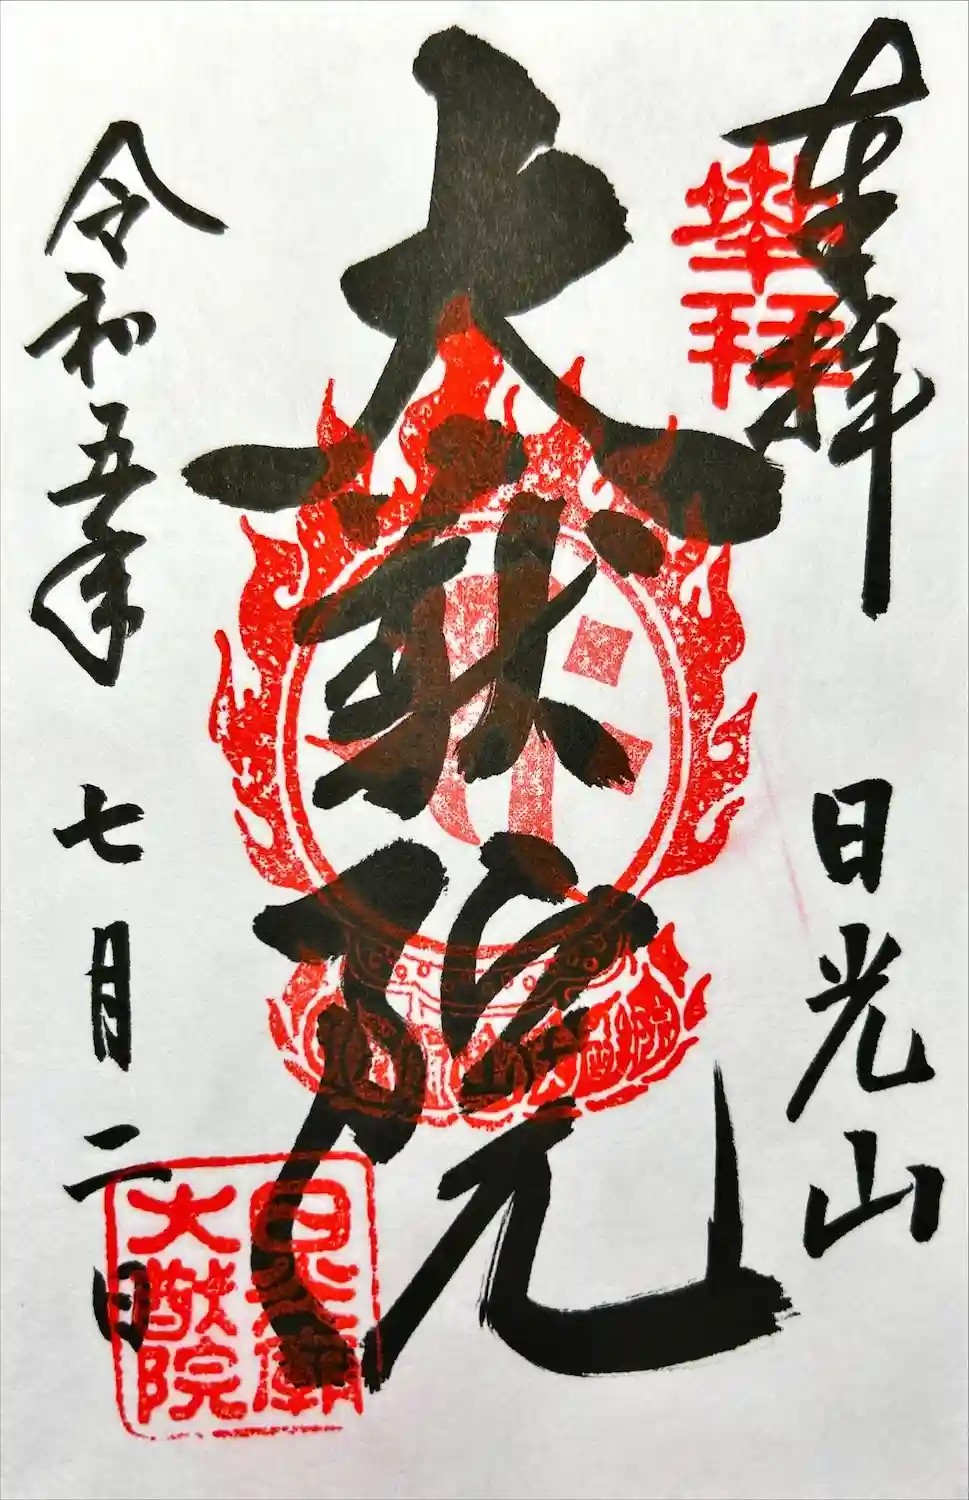 奉拝
奉拝
日光山
大猷院
令和五年
七月二日
大猷院